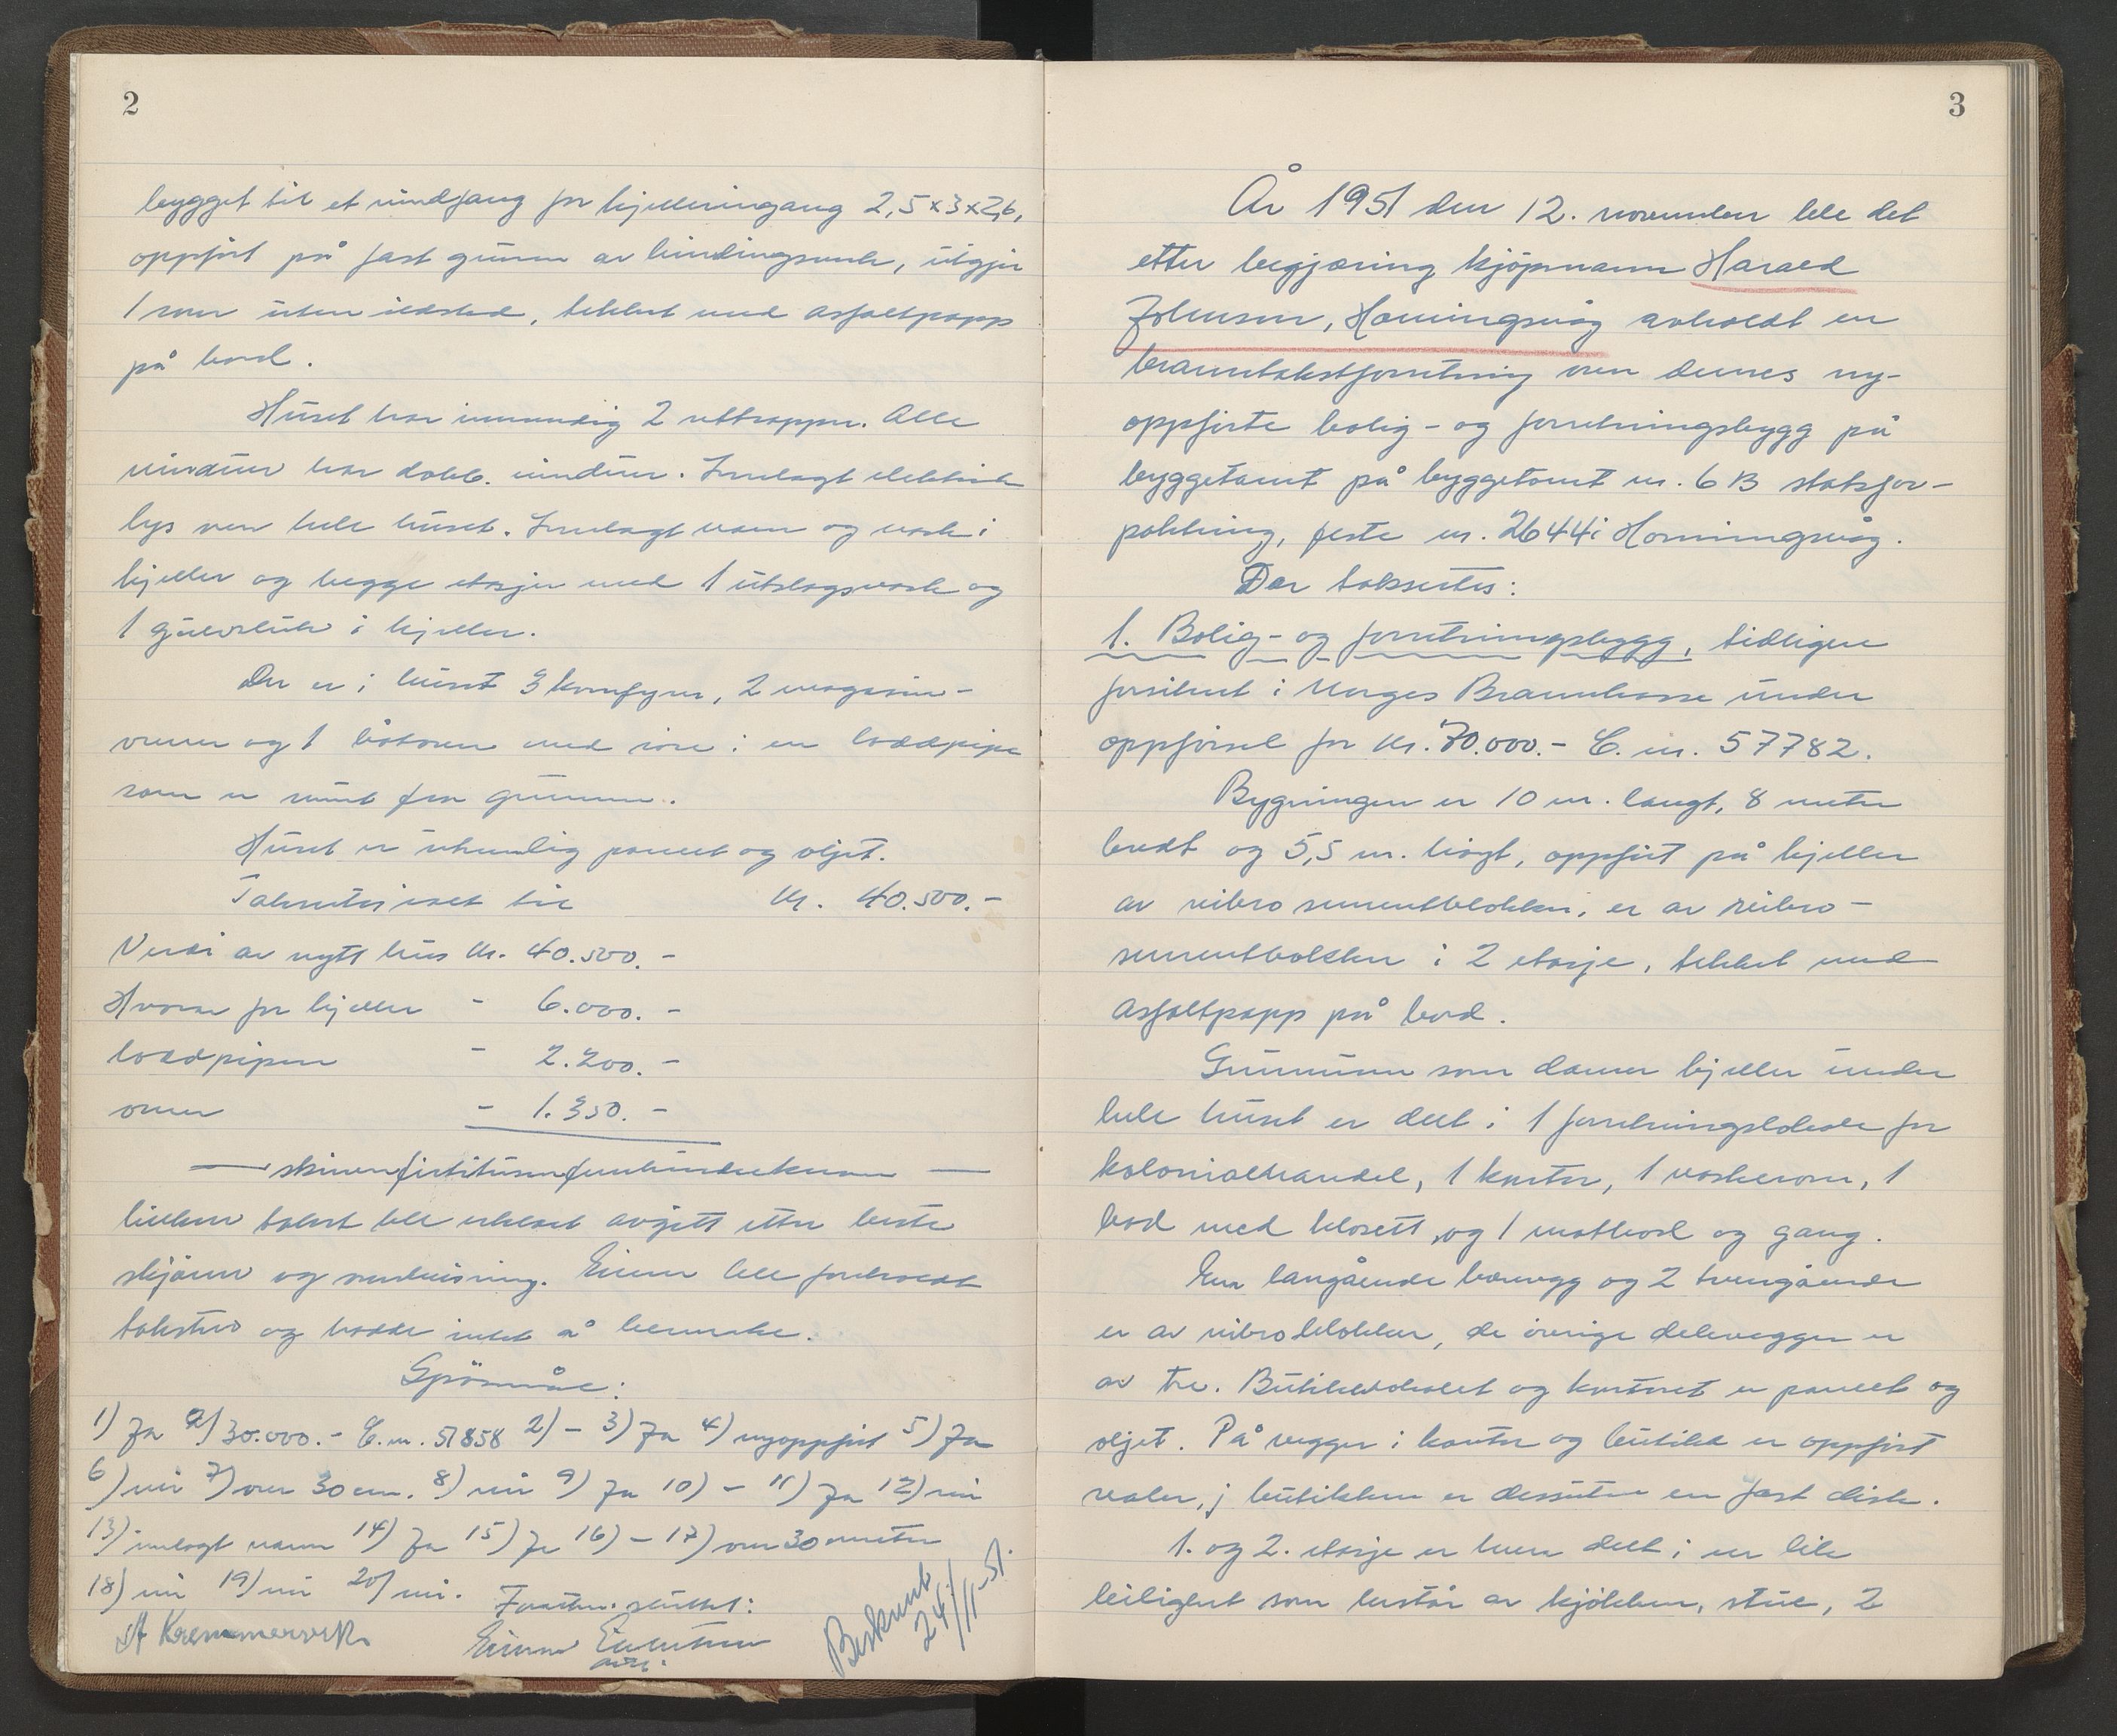 2
bygget til et vindfang for kjellerinngang 2,5x3x2,6,
oppført på fast grunn av bindingsverk, utgjør
1 rom uten ildsted, tekket med asfaltpapp
på bord.
Huset har innvendig 2 rettrapper. Alle
vinduer har dobb. vinduer. Innlagt elektrisk
lys over hele huset. Innlagt vann og vask i
kjeller og begge etasjer med 1 utslagsvask og
1 gulvsluk i kjeller.
Der er i huset 3 komfyrer, 2 magasin-
ovner og 1 ovn med rør i en loddpipe
som er murt fra grunnen.
Huset er utvendig panelt og oljet.
Taksertes iset til kr. 40.500.-
Verdi av nytt hus kr. 40.500.-
Hvorav for kjeller - 6.000.-
loddpipen - 2.200.-
ovner - 1.350.-
— skriver førtitusenfemhundrekroner —
hvilken takst ble erklært avgitt etter beste
skjønn og overbevisning. Eieren ble foreholdt
taksten og hadde intet å bemerke.
Spörsmål:
1) Ja a) 30.000.- C.nr. 57858 2) – 3) Ja 4) nyoppført 5) Ja
6) nei 7) over 30 cm. 8) nei 9) Ja 10) – 11) Ja 12) nei
13) innlagt vann 14) Ja 15) Ja 16) – 17) over 30 meter
18) nei 19) nei 20) nei. Forretn. sluttet:
Beskrevet
24/11-51.
3
År 1951 den 12. november ble det
etter begjæring kjöpmann Harald
Johnsen, Honningsvåg avholdt en
branntakstforretning over dennes ny-
oppførte bolig- og forretningsbygg på
byggetomt på byggetomt nr. 6 B statsfor-
pakting, feste nr. 2644 i Honningsvåg.
Der taksertes:
1. Bolig- og forretningsbygg, tidligere
forsikret i Norges Brannkasse under
oppførsel for kr. 70.000.- C. nr. 57782.
Bygningen er 10 m. langt, 8 meter
bredt og 5,5 m. högt, oppført på kjeller
av vibro sementblokker, er av vibro-
sementblokker i 2 etasje, tekket med
asfaltpapp på bord.
Grunnmuren som danner kjeller under
hele huset er delt i 1 forretningslokale for
kolonialhandel, 1 kontor, 1 vaskerom, 1
bod med klosett, og 1 matbod og gang.
En langående bærevegg og 2 tverrgående
er av vibroblokker, de övrige delevegger er
av tre. Butikklokalet og kontoret er panelt og
oljet. På vegger i kontor og butikk er oppført
reoler, i butikken er dessuten en fast disk.
1. og 2. etasje er hver delt i en hel
leilighet som består av kjökken, stue, 2